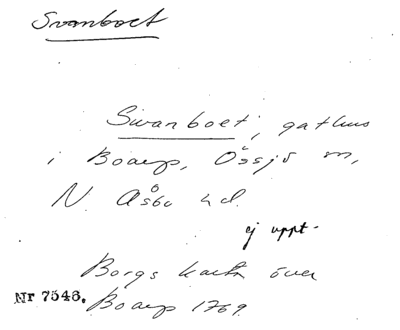 Svanboet
Swanboet, gathus
i Boarp, Össjö sn,
N. Åsbo hd.
ej uppt.
Borgs karta över
Nr 7546. Boarp 1769